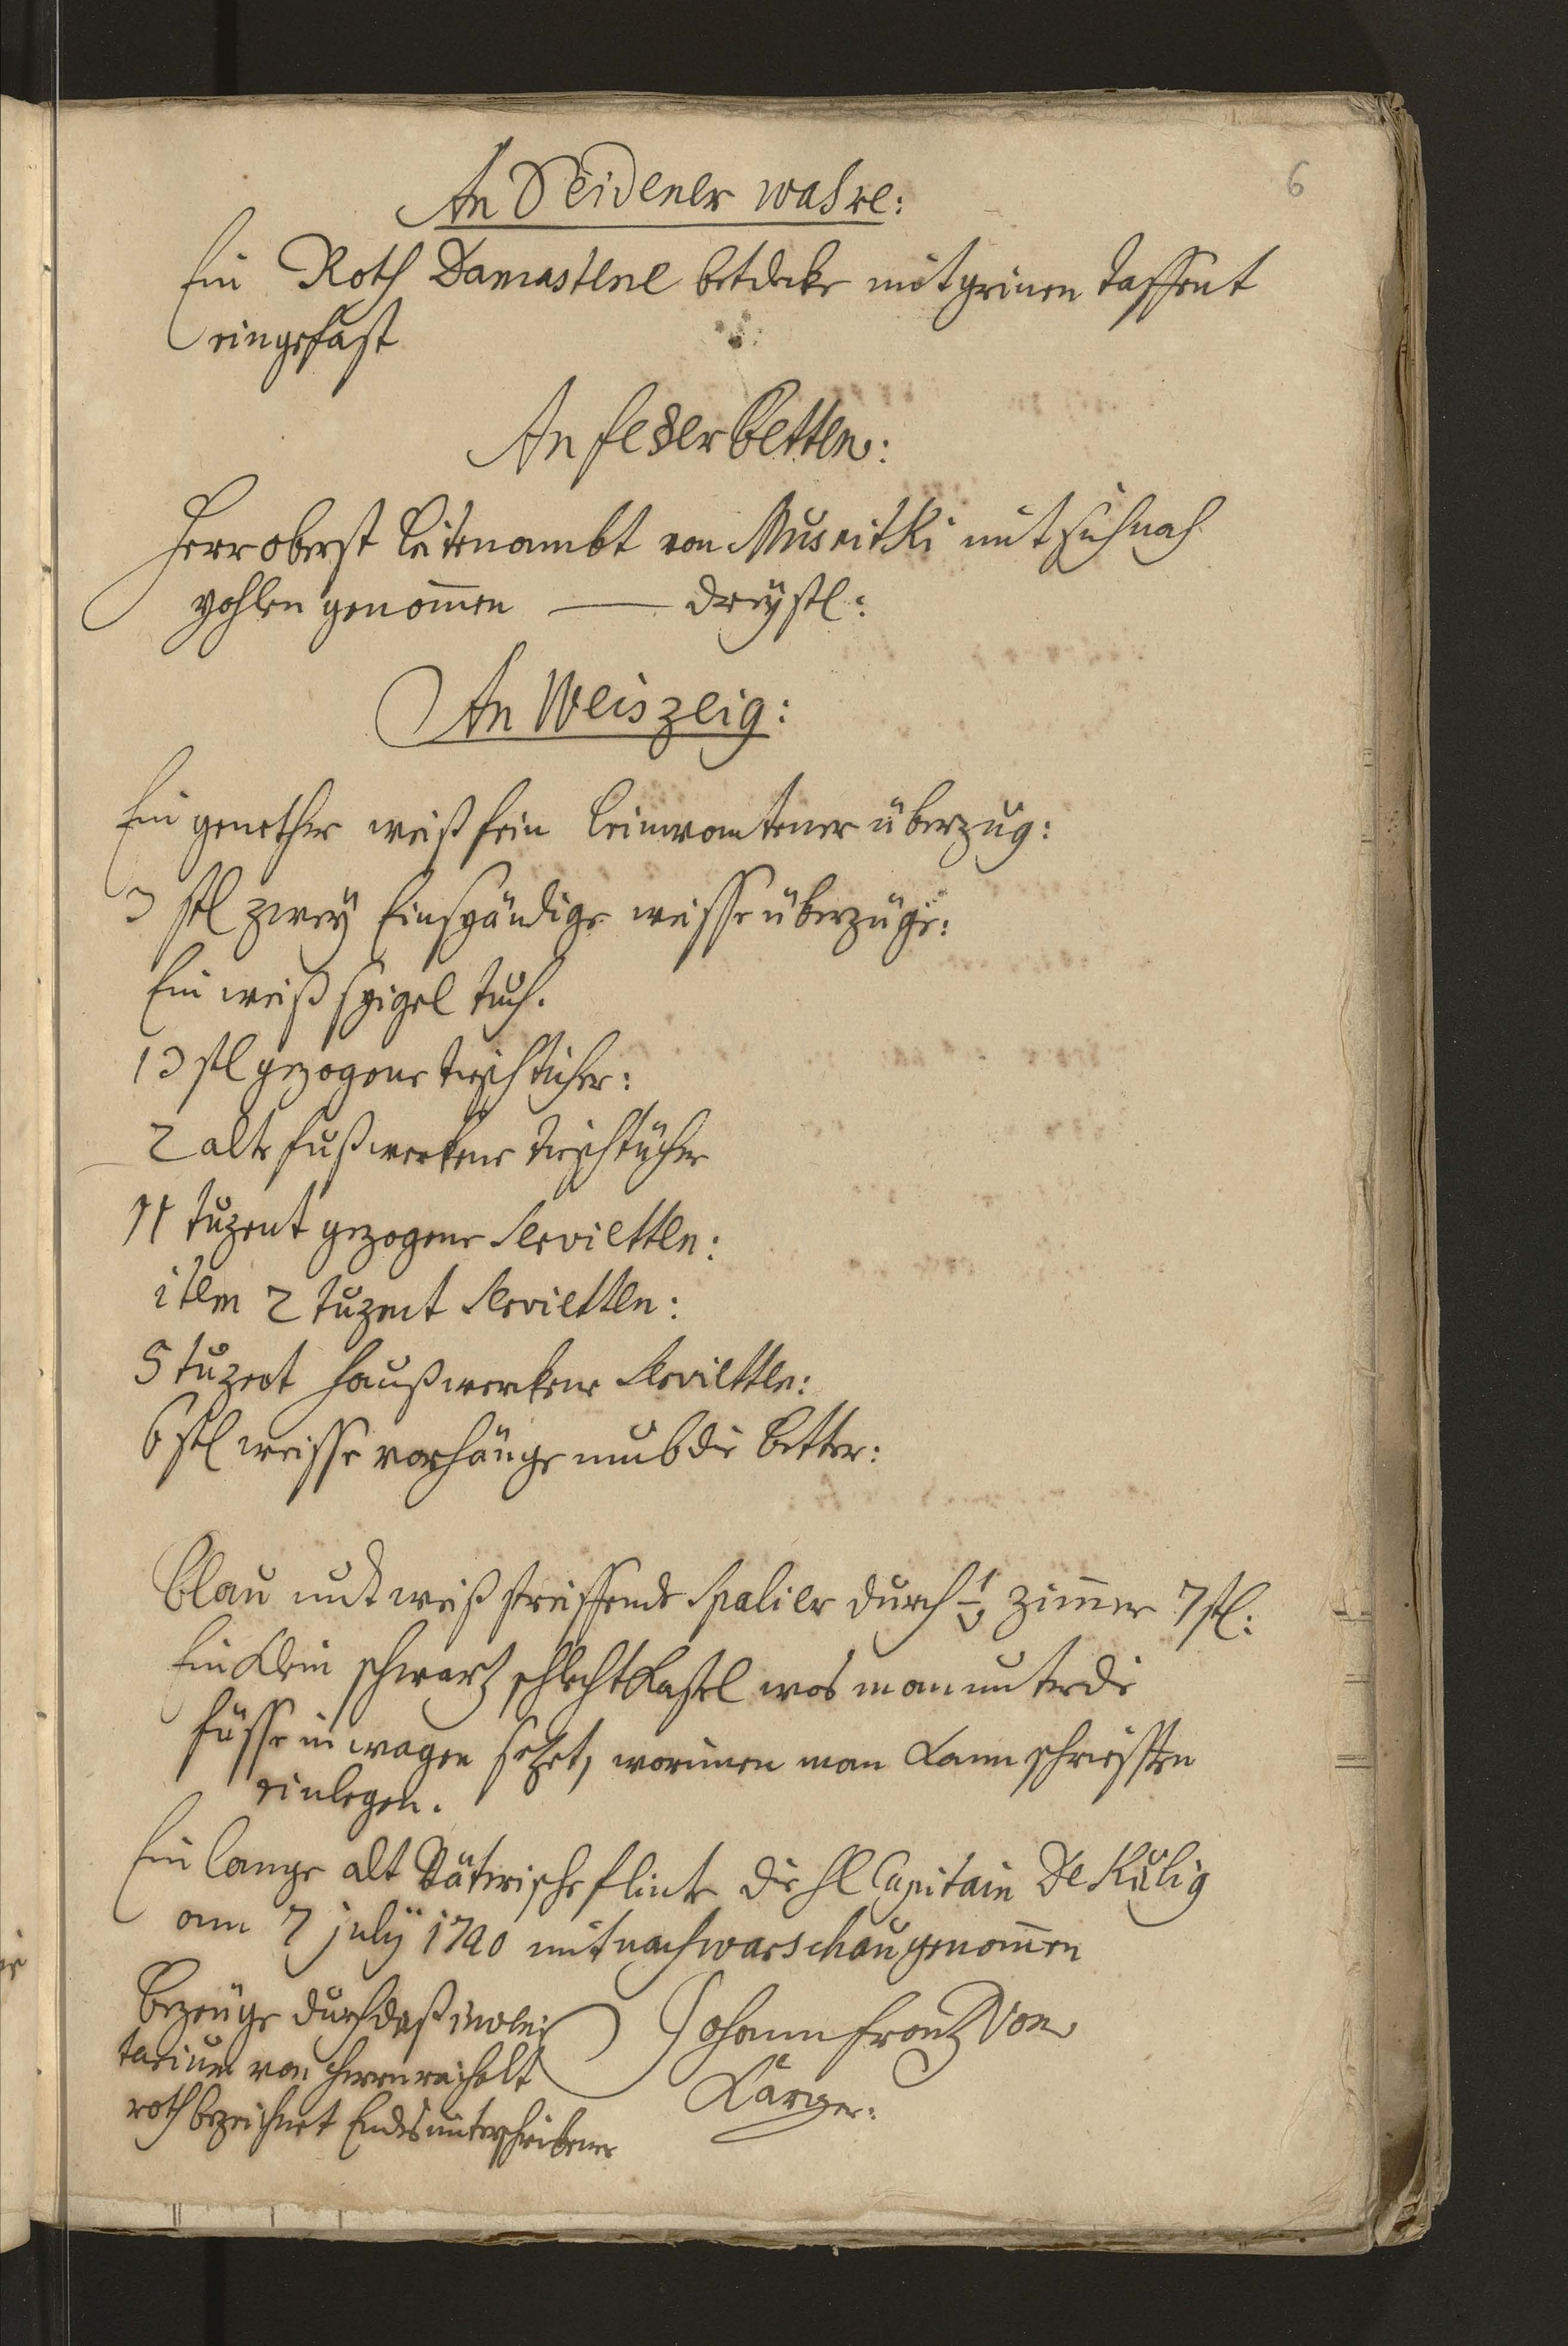 6
An Seidener wahre:
Ein Roth Damastene betdecke mit grinen taffent
eingefast
An federbetten:
Herr oberst leitenambt von Musnitki mit sich nach
pohlen genom̄en — dreÿ stl:
An Weiszeig:
Ein genether weiß fein leinwantener überzug:
3 stl zweÿ Einspändige weisse überzüge:
Ein weiß spigel tuch.
13 stl gezogene tischticher:
2 alte haußwerkene tischtücher
11 tuzent gezogene Servietten:
item 2 tuzent Servietten:
5 tuzent haußwerkene Servietten:
6 stl weisse vorhänge umb die better:
blau undt weiß streiffende Spalier durch 1 zim̄er 7 stl:
Ein klein schwartz schlecht kastel was man unter die
füsse in wagen setzet, worinnen man kann schriefften
einlegen.
Ein lange alt Vätterische flinte die hl Capitain De Kulig
am 7 julÿ 1740 mit nach warschau genom̄en
bezeuge durch daß inven
tarium von herrn reichelt
roth bezeichnet Endes unterschribener
Johann frantz Von
Larger: